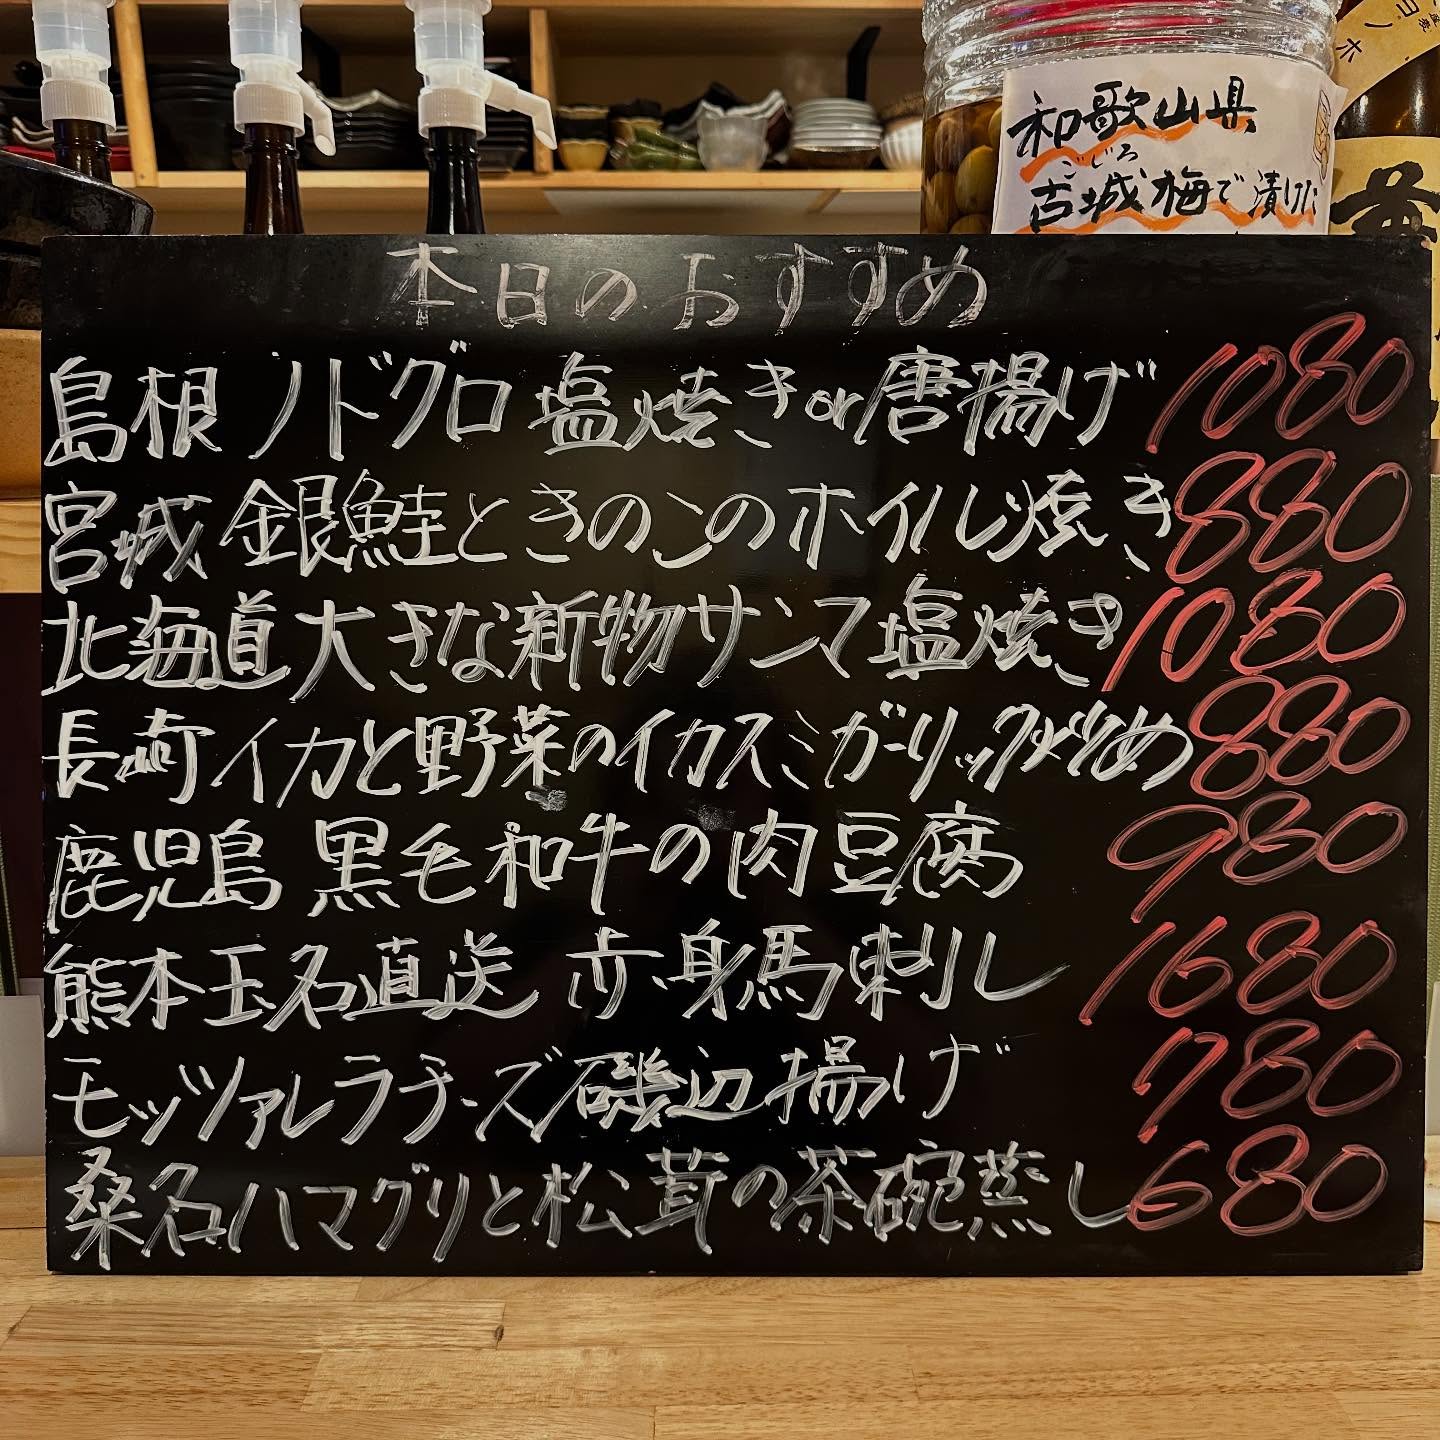 和歌山県
ごじろ
古城梅で漬けた
本日のおすすめ
島根 ノドグロ 塩焼きor唐揚げ 1080
宮城 銀鮭ときのこのホイル焼き 880
北海道 大きな新物サンマ塩焼き 1080
長崎 イカと野菜のイカスミガーリック炒め 880
鹿児島 黒毛和牛の肉豆腐 980
熊本玉名直送 赤身馬刺し 1680
モッツァレラチーズ磯辺揚げ 780
桑名ハマグリと松茸の茶碗蒸し 680